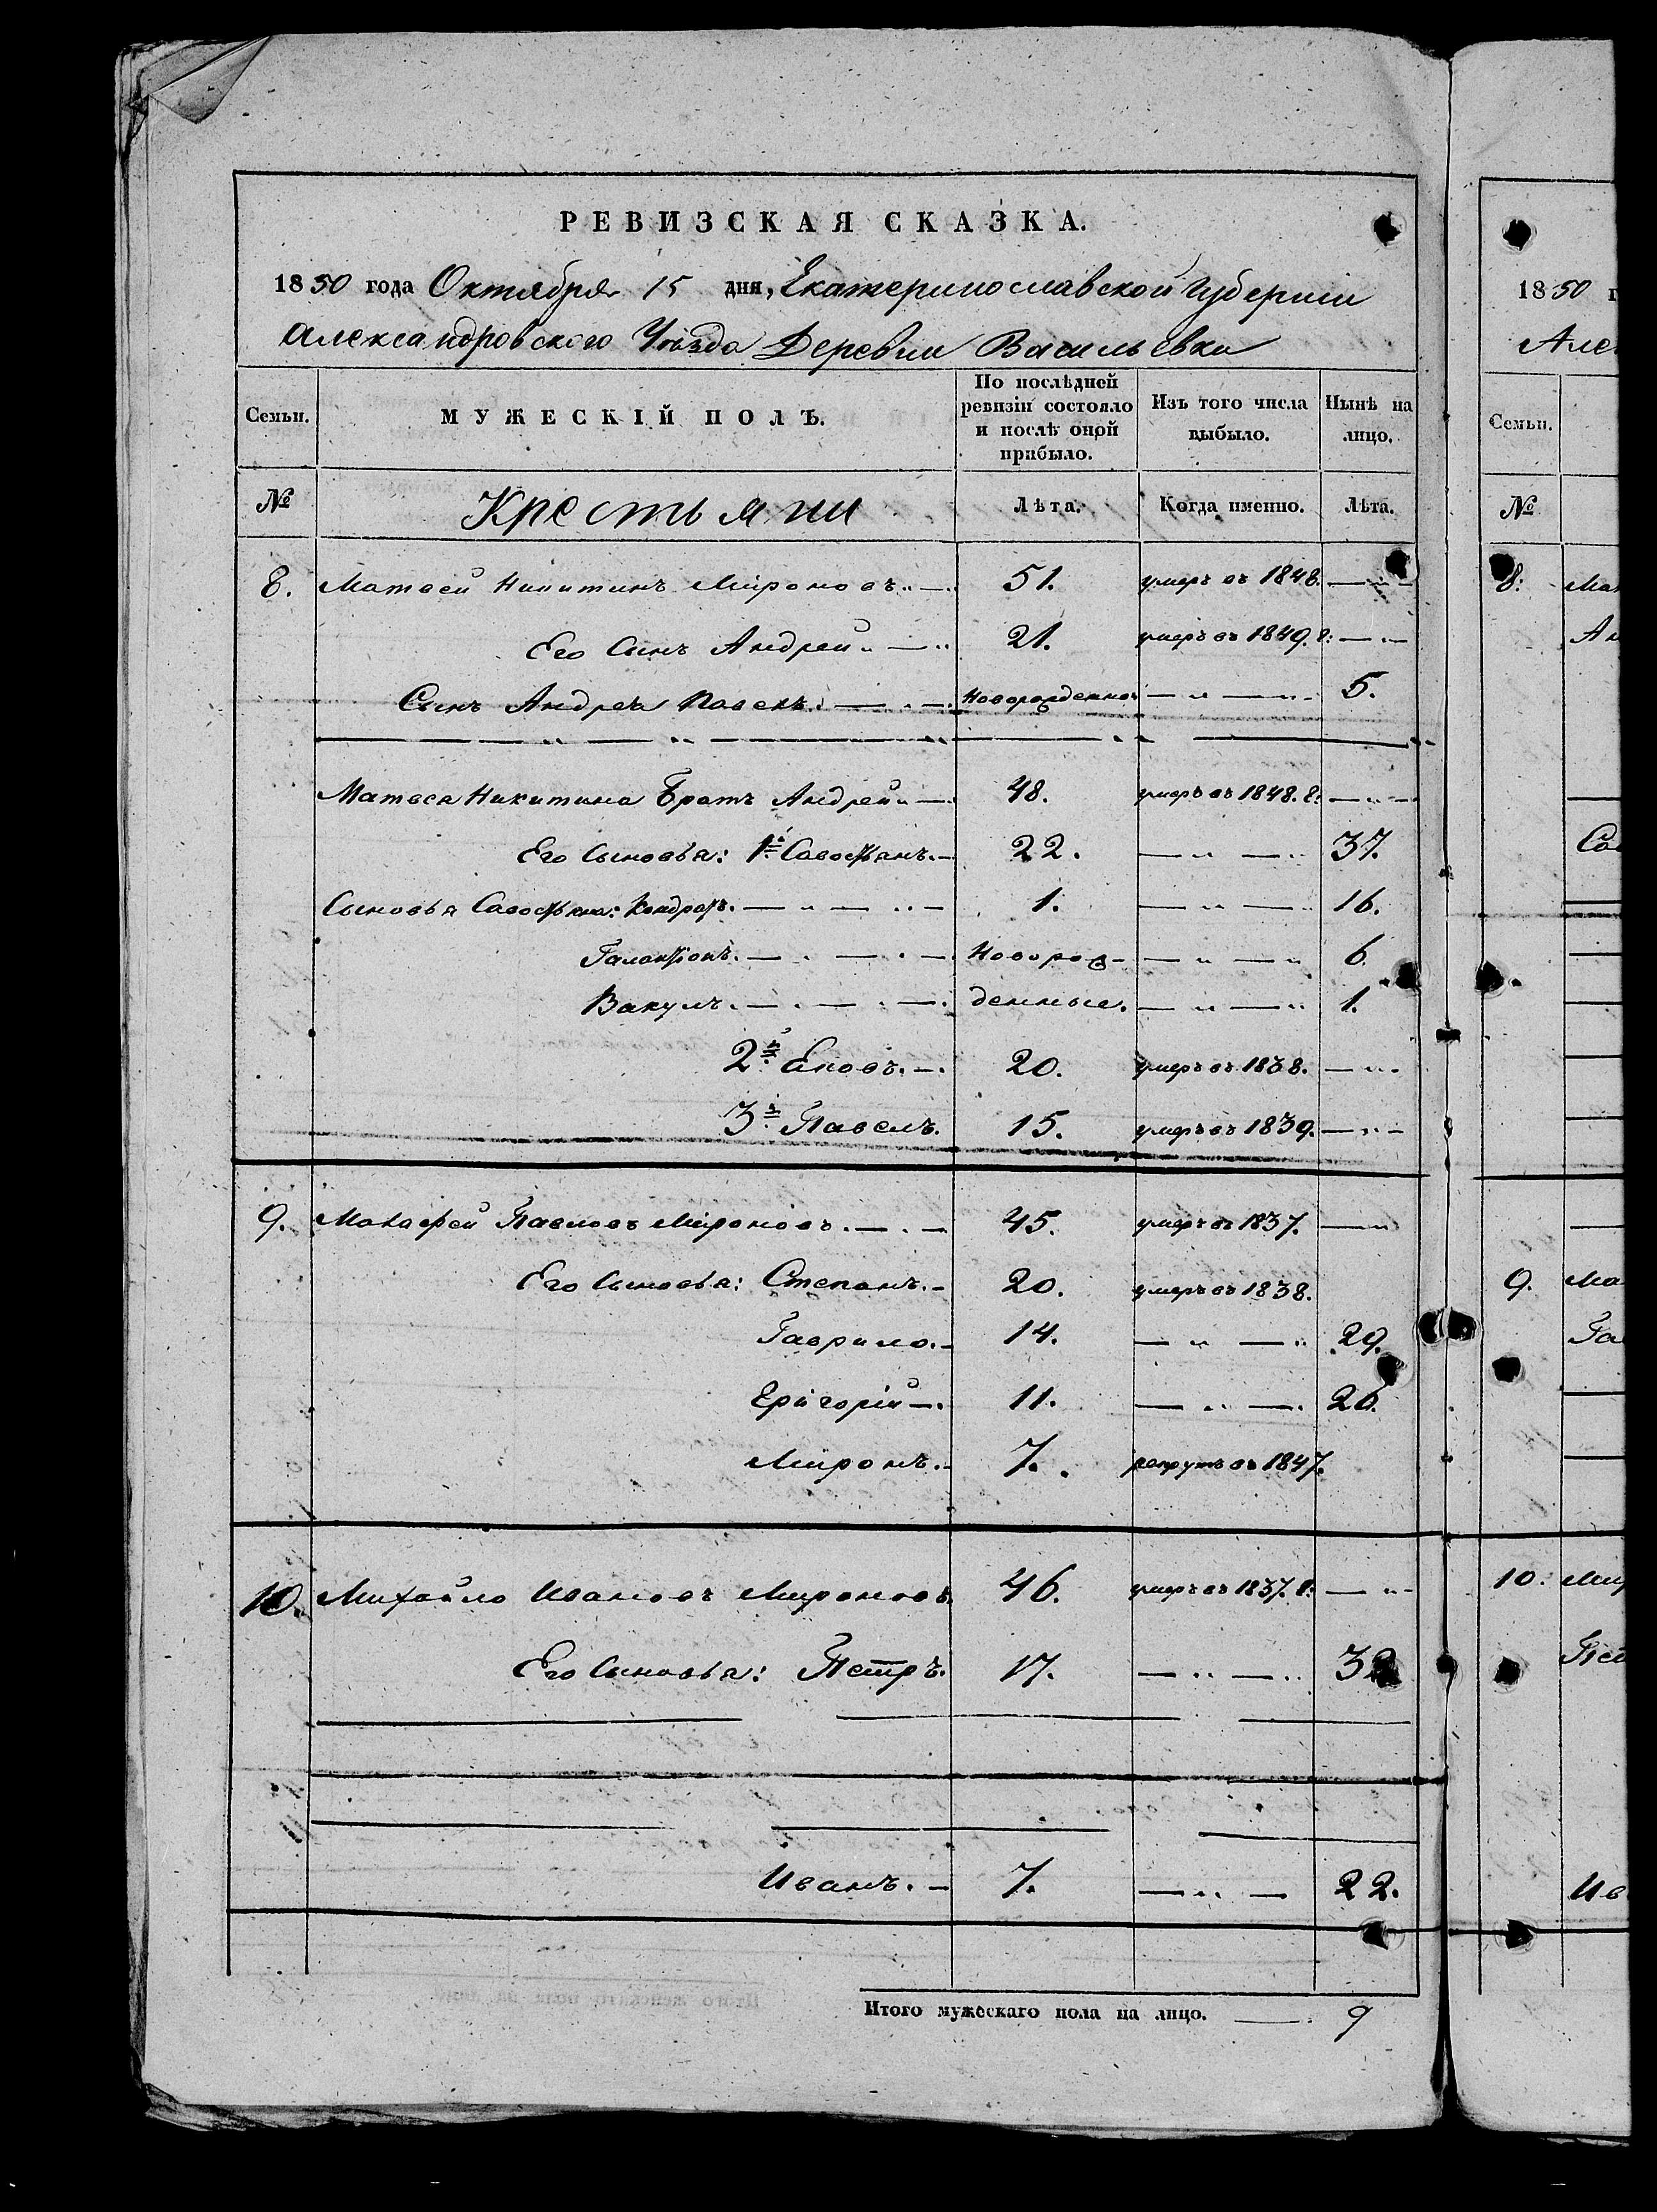 РЕВИЗСКАЯ СКАЗКА.
1850 года Октября 15 дня, Екатеринославской Губернии
Александровского Уѣзда Деревни Васильевки
Семьи. МУЖЕСКІЙ ПОЛЪ. По послѣдней ревизіи состояло и послѣ оной прибыло. Изъ того числа выбыло. Нынѣ на лицо.
№ Крестьяни Лѣта. Когда именно. Лѣта.
8. Матвей Никитинъ Мироновъ 51. умеръ въ 1848.
Его Сынъ Андрей 21. умеръ въ 1849. г:
Сынъ Андрея Павелъ Новорожденной 5.
Матвея Никитина Братъ Андрей 48. умеръ въ 1848. г:
Его Сыновья: 1й Савостьянъ. 22. 37.
Сыновья Савостьяна: Кондратъ. 1. 16.
Галактіонъ. Новорож- 6.
Вакулъ. денные. 1.
2й 20. умеръ въ 1838.
3й Павелъ. 15. умеръ въ 1839.
9. Павловъ Мироновъ. 45. умеръ въ 1837.
Его Сыновья: Степанъ. 20. умеръ въ 1838.
Гаврило. 14. 29.
Григорій 11. 26.
Миронъ. 7. рекрутъ въ 1847.
10. Михайло Ивановъ Мироновъ 46. умеръ въ 1837. г:
Его Сыновья: Петръ. 17. 32
Иванъ. 7. 22.
Итого мужескаго пола на лицо. 9
1850
Але
Семьи.
№
8. Мат
Ан
Са
9. Ма
Га
10. Ми
Пет
Ив